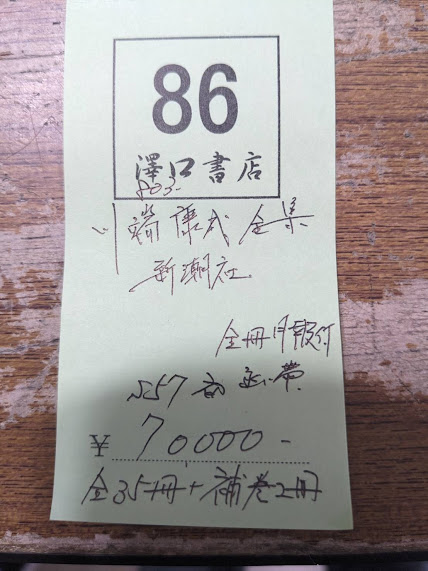 86
澤口書店
803-
川端康成全集
新潮社.
全冊月報付
S57 函 帯
¥ 70000-
全35冊+補巻2冊